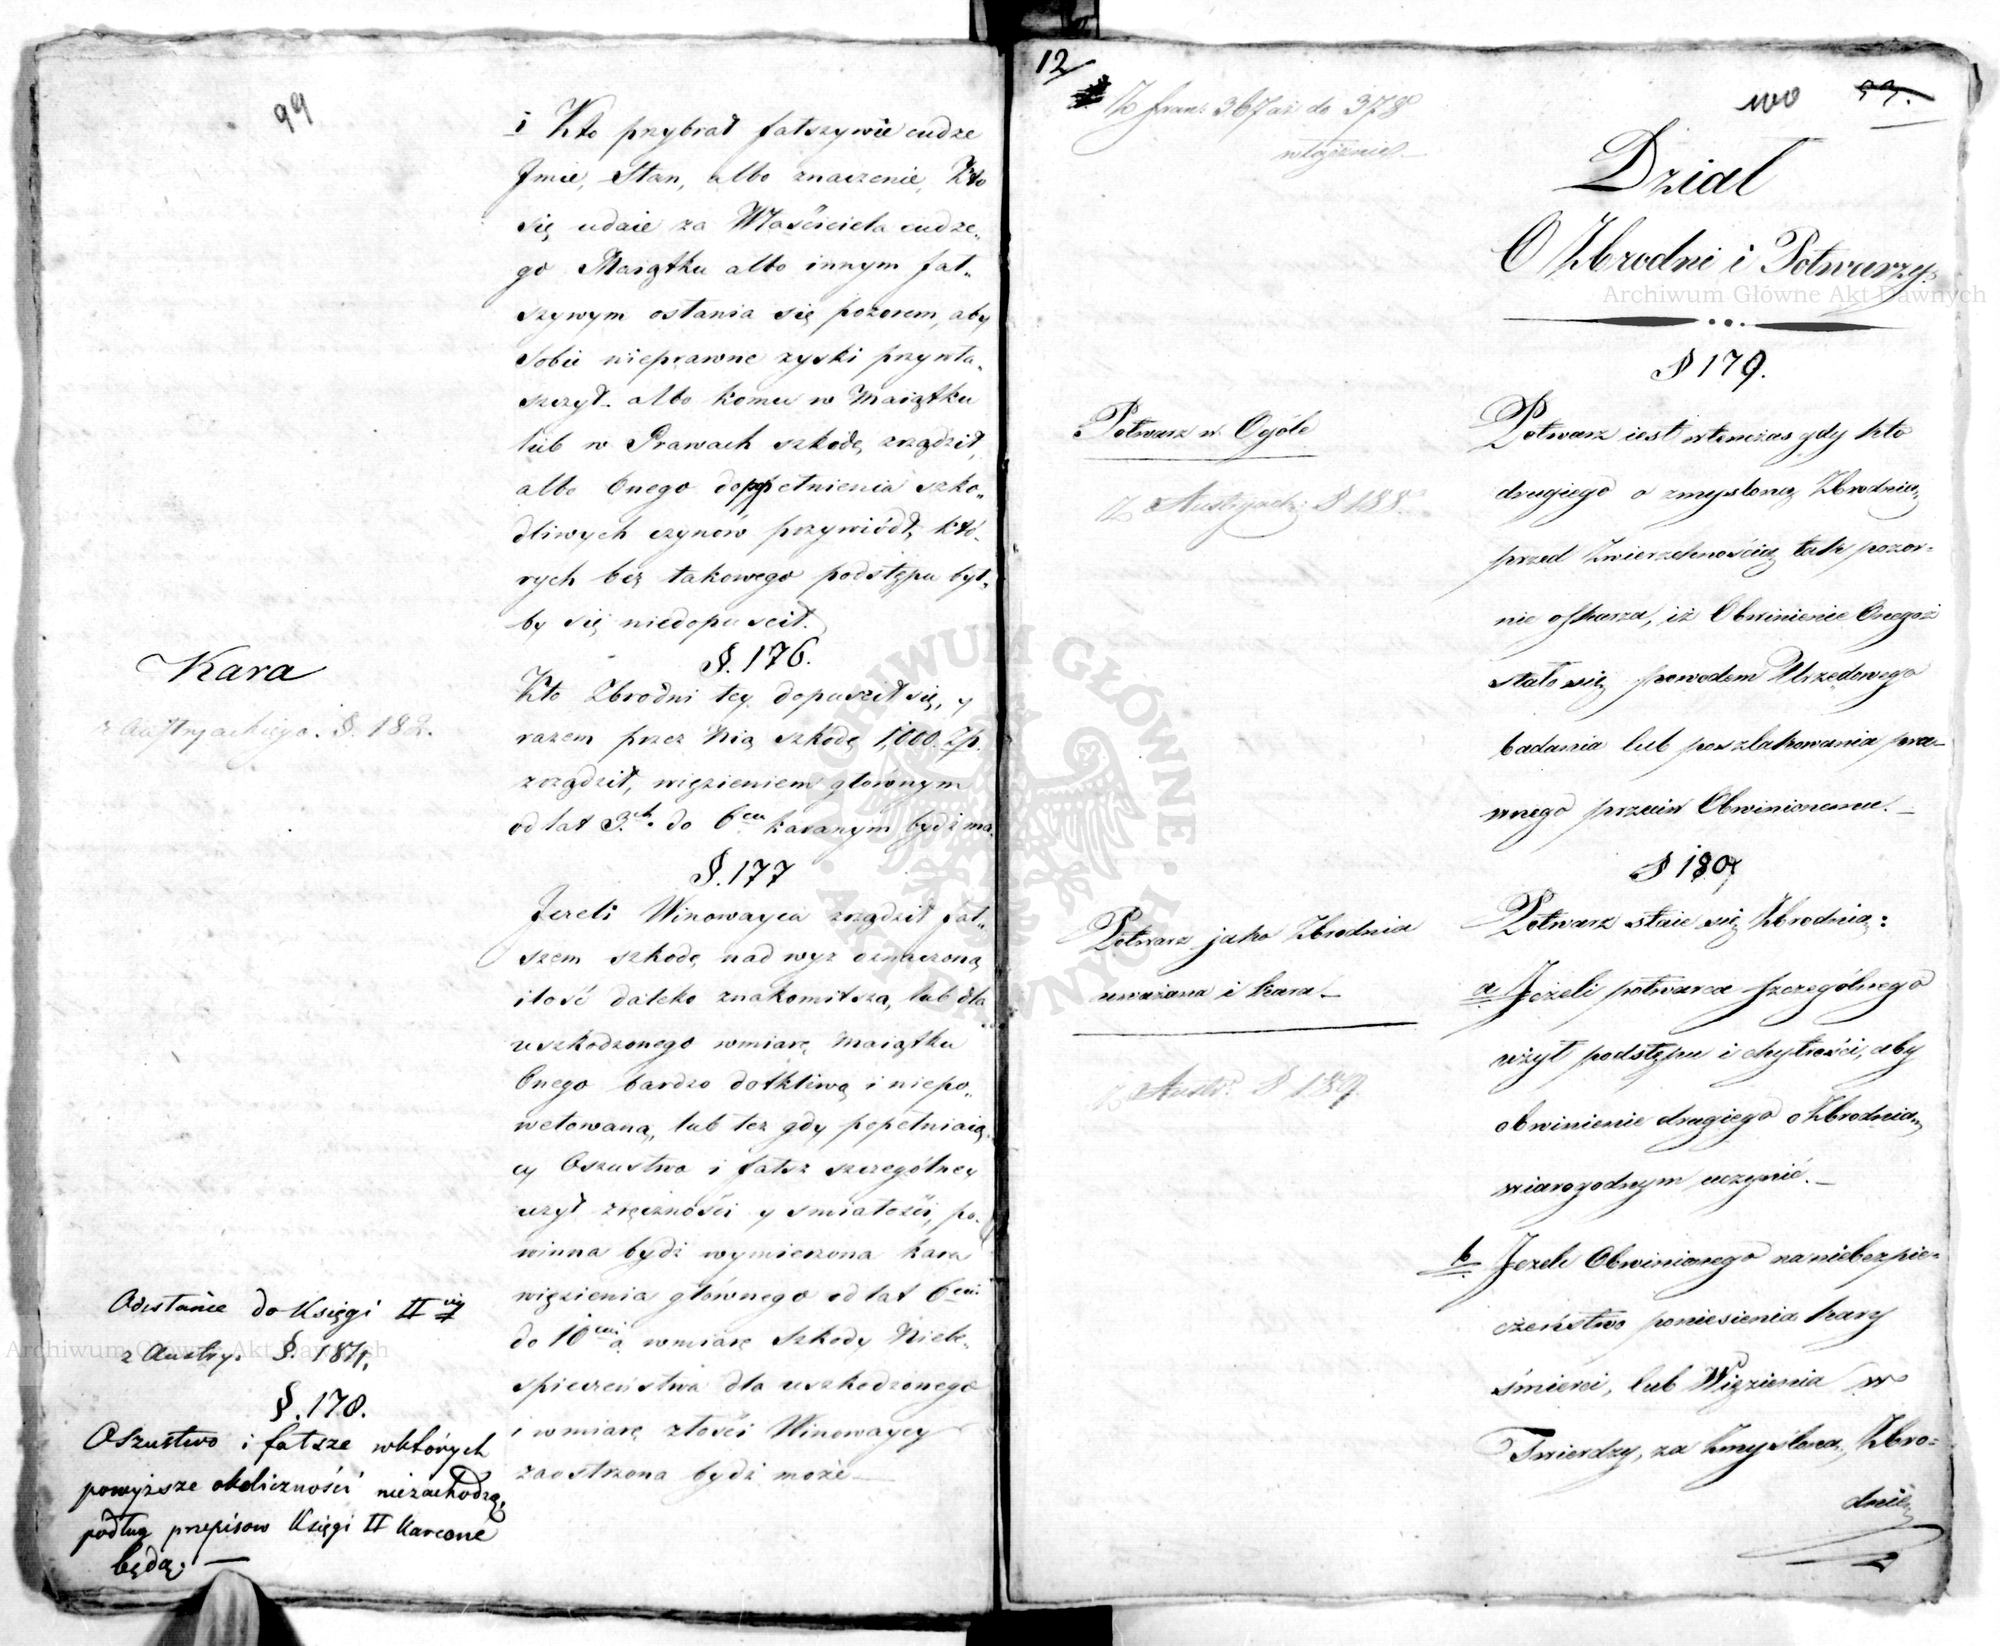 99
i Kto przybrał fałszywie cudze
Jmie, Stan, albo znaczenie, Kto
się udaie za Właściciela cudze„
go Maiątku albo innym fał„
szywym osłania się pozorem, aby
Sobie nieprawne zyski przywła„
szczył. albo komu w Maiątku
lub w Prawach szkodę zrządził,
albo Onego dopełnienia szko„
dliwych czynów przywiódł, któ„
rych bez takowego podstępu był„
by się niedopuscił.
§. 176.
Kara
z Austryackiego. §. 182.
Kto Zbrodni tey dopuszcił się, y
razem przez Nią szkodę 1,000. Zp.
zrządził, więzieniem głownym
od lat 3.ch do 6ciu karanym bydź ma.
§. 177
Jezeli Winowayca zrządził fał„
szem szkodę nad wyz oznaczoną
ilość daleko znakomitszą, lub dla
uszkodzonego wmiarę Maiątku
Onego bardzo dotkliwą i niepo„
wetowaną, lub tez gdy popełniaią„
cy Oszustwo i fałsz szczególney
uzył zręczności y smiałości, po„
winna bydź wymierzona kara
więzienia głównego od lat 6ciu
do 10ciu a wmiarę Szkody Niebe„
spieczeństwa dla uszkodzonego
i wmiarę złości Winowaycy
zaostrzona bydź może —
Odesłanie do Księgi II
z Austry. §. 184.
§. 178.
Oszustwo i fałsze wktórych
powyższe okoliczności niezachodzą,
podług przepisow Księgi II Karcone
będą. —
12
Z fran: 367 aż do 378
włącznie. —
100 99.
Dział
O Zbrodni i Potwarzy.
§ 179.
Potwarz w Ogóle
z Austryack: § 188.
Potwarz iest wtenczas gdy kto
drugiego o zmysloną Zbrodnię,
przed Zwierzchnością tak pozor„
nie oskarza, iż Obwinienie Onegoż
stało się powodem Urzędowego
badania lub poszlakowania pra„
wnego przeciw Obwinionemu. —
§ 180
Potwarz jako Zbrodnia
uważana i kara —
z Austr: § 189.
Potwarz staie się Zbrodnią:
a Jeżeli potwarca szczególnego
użył podstępu i chytrości, aby
obwinienie drugiego o Zbrodnią,
wiarogodnym uczynić. —
b Jeżeli Obwinionego na niebezpie„
czeństwo poniesienia kary
śmierci, lub Więzienia w
Twierdzy, za Zmyśloną Zbro„
dnię,
Archiwum Główne Akt Dawnych
Archiwum Główne Akt Dawnych
ARCHIWUM GŁÓWNE AKT DAWNYCH